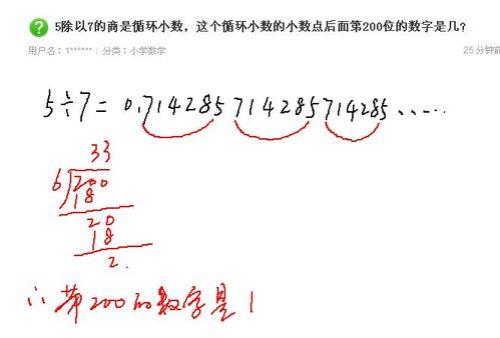 5除以7的商是循环小数，这个循环小数的小数点后面第200位的数字是几？
用户名：1****** | 分类：小学数学 25分钟前
5÷7=0.714285714285714285......
33
6 200
18
20
18
2.
∴第200的数字是1